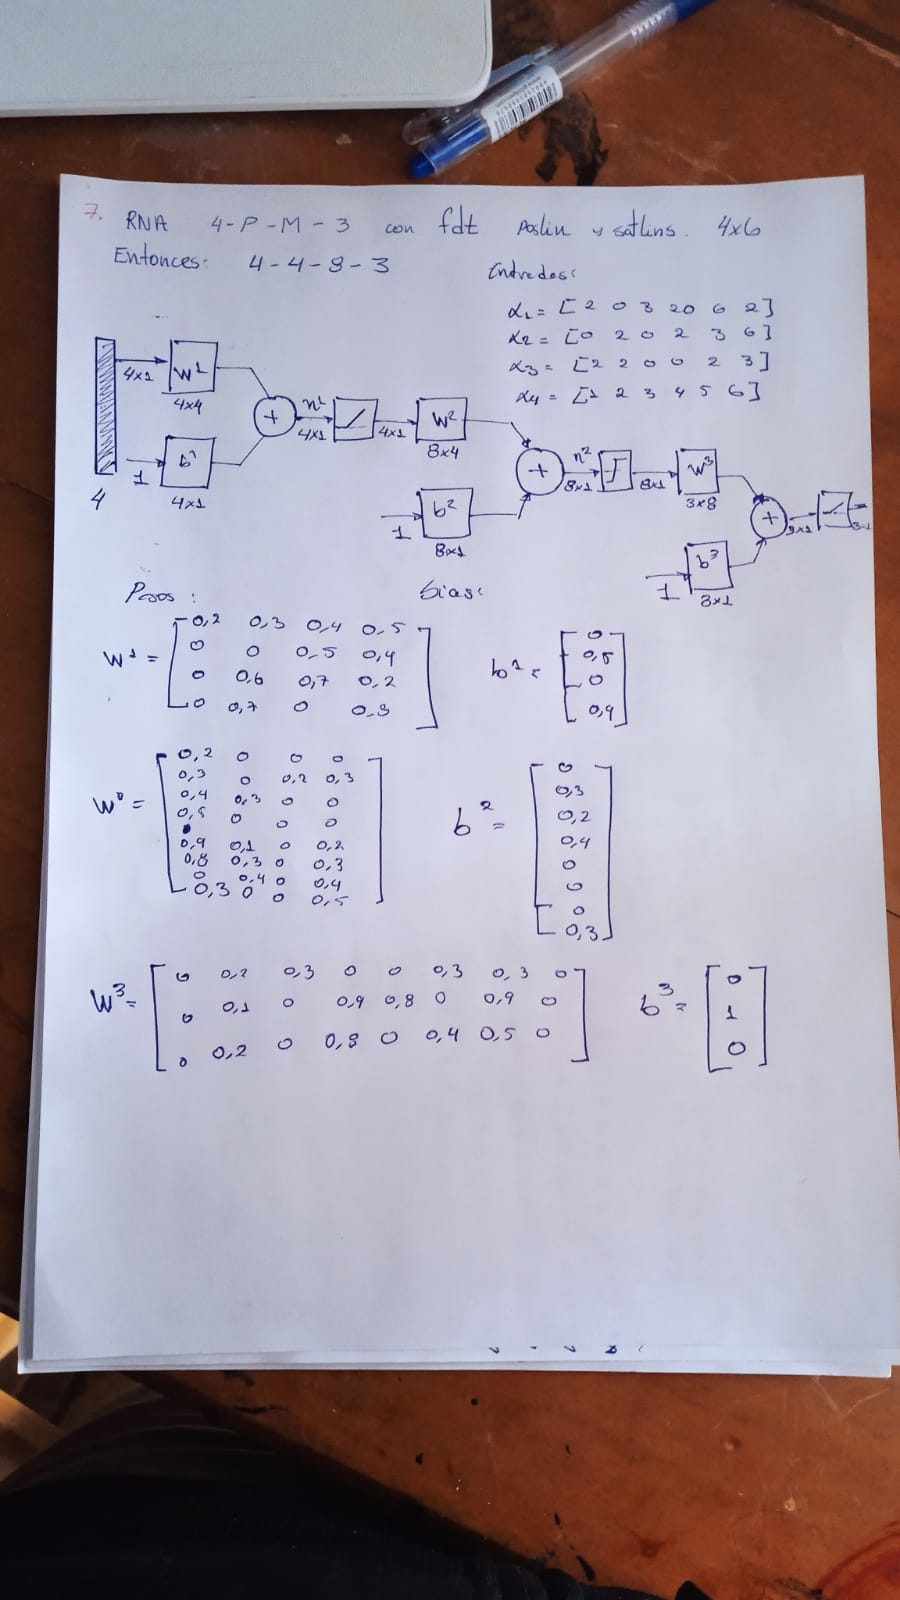 7. RNA 4-P-M-3 con fdt Poslin y satlins. 4x6
Entonces: 4-4-8-3
Entredas:
x1 = [2 0 3 20 6 2]
x2 = [0 2 0 2 3 6]
x3 = [2 2 0 0 2 3]
x4 = [1 2 3 4 5 6]
4x1 W1 4x4
1 b1 4x1
4
+ n1 4x1 4x1 W2 8x4
1 b2 8x1
+ n2 8x1 8x1 W3 3x8
1 b3 3x1
+ 3x1
Pesos: bias:
W1 =
0,2 0,3 0,4 0,5
0 0 0,5 0,4
0 0,6 0,7 0,2
0 0,7 0 0,3
b1 =
0
0,5
0
0,9
0,2 0 0 0
0,3 0 0,2 0,3
0,4 0,3 0 0
0,5 0 0 0
0,9 0,1 0 0,2
0,8 0,3 0 0,3
0 0,4 0 0,4
0,3 0 0 0,5
b2 =
0
0,3
0,2
0,4
0
0
0
0,3
W3 =
0 0,2 0,3 0 0 0,3 0,3 0
0 0,1 0 0,9 0,8 0 0,9 0
0 0,2 0 0,8 0 0,4 0,5 0
b3 =
0
1
0